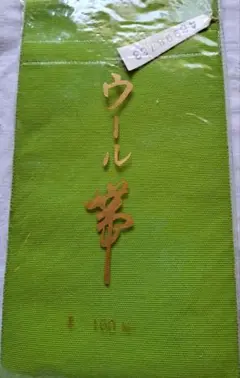 ウール帯
毛 100%